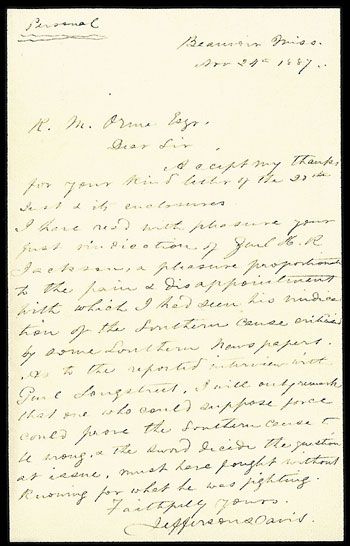 Personal
Beauvoir Miss.
Nov 24th 1887.
R. M. Orme Esqr.
Dear Sir
Accept my thanks
for your kind letter of the 22nd
Inst & its enclosures.
I have read with pleasure your
just vindication of Genl H. R.
Jackson, a pleasure proportionate
to the pain & disappointment
with which I had seen his vindica-
tion of the Southern Cause criticised
by some Southern Newspapers.
As to the reported interview with
Genl Longstreet, I will only remark
that one who could suppose force
could prove the Southern Cause to
be wrong, & the sword decide the question
at issue, must have fought without
Knowing for what he was fighting.
Faithfully yours,
Jefferson Davis.